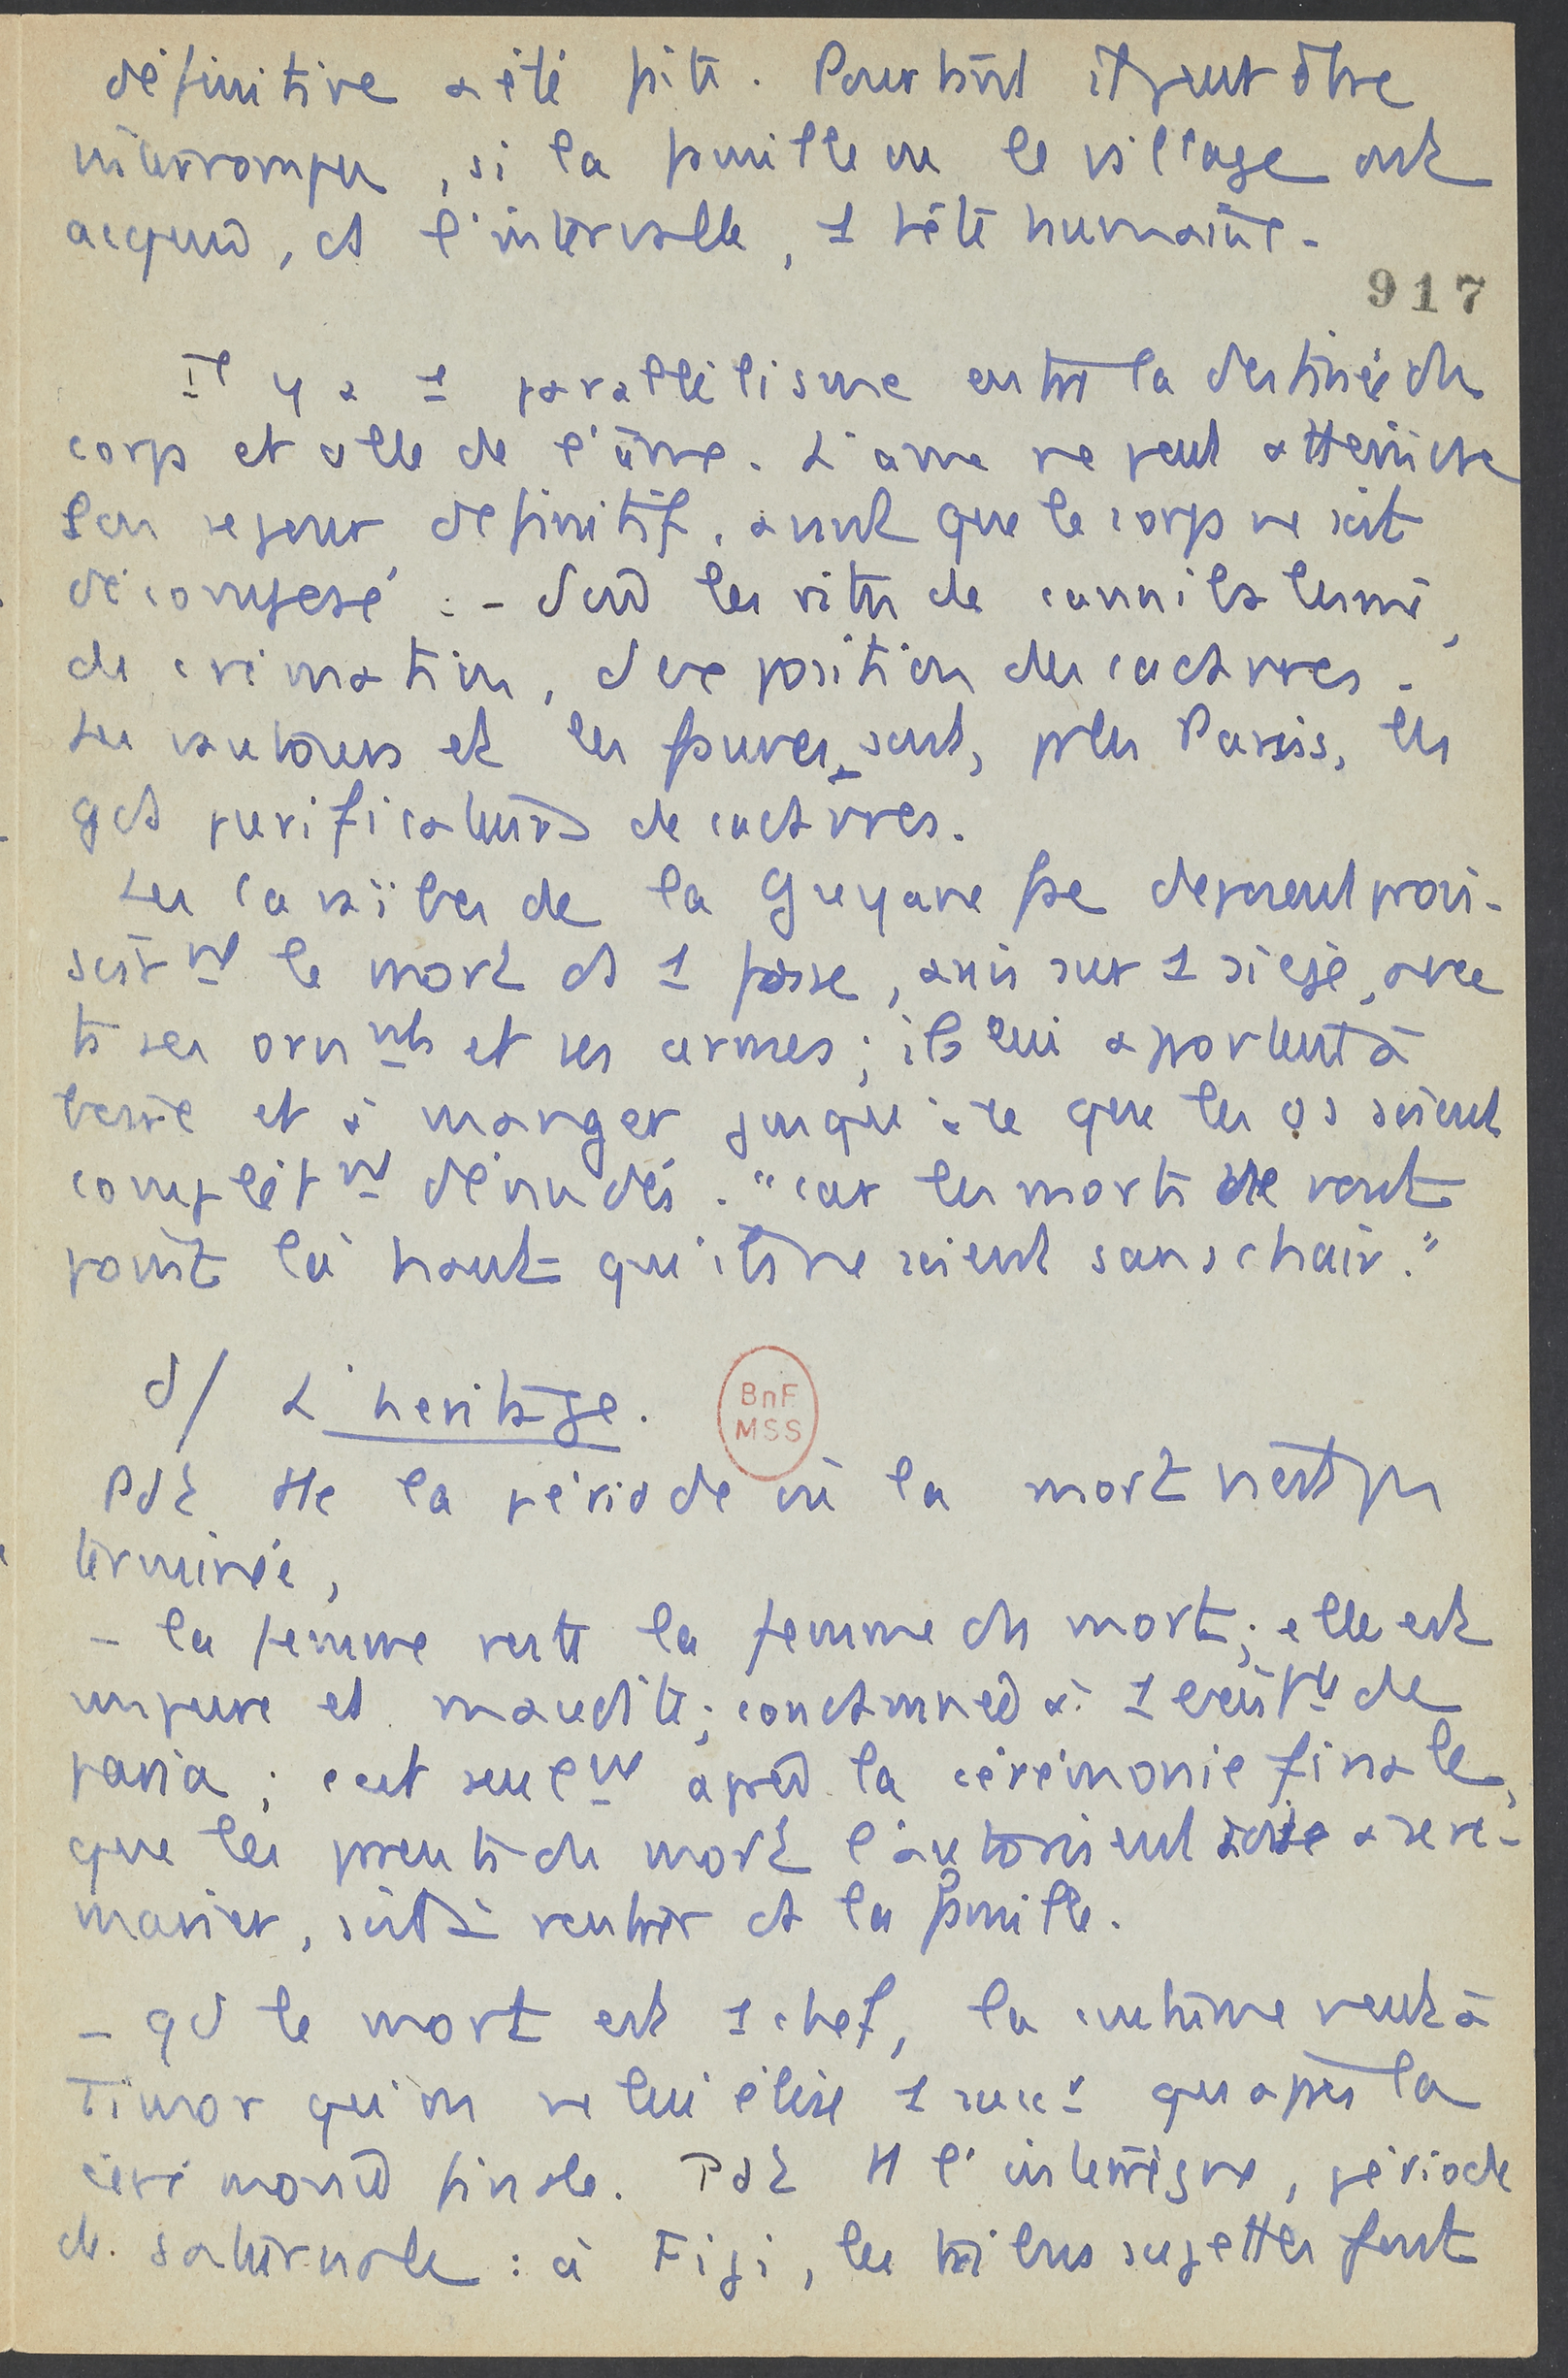 définitive a été faite. Pourtant il peut être
interrompu, si la famille ou le village ont
acquis, ds l'intervalle, 1 tête humaine.
917
Il y a 1 parallélisme entre la destinée du
corps et celle de l'âme. L'âme ne peut atteindre
son sejour definitif, avant que le corps ne soit
décomposé : - d'où les rites de cannibalisme,
de crémation, d'exposition des cadavres.
Les vautours et les fauves sont, pr les Parsis, les
gds purificateurs de cadavres.
Les Caraïbes de la Guyane fse déposent provi-
soirmt le mort ds 1 fosse, assis sur 1 siege, avec
ts ses ornmts et ses armes ; ils lui apportent à
boire et à manger jusqu'à ce que les os soient
complètmt dénudés. "car les morts ne vont
point là haut qu'ils ne soient sans chair."
d/ L'heritage.
BnF
MSS
Pdt tte la période où la mort n'est pas
terminée,
- la femme reste la femme du mort ; elle est
impure et maudite ; condamnée à 1 existce de
paria ; c'est seulmt après la cérémonie finale,
que les parents du mort l'autorisent soit à se re-
marier, soit à rentrer ds la famille.
- qd le mort est 1 chef, la coutume veut à
Timor qu'on ne lui élise 1 succr qu'après la
cérémonie finale. Pdt tt l'interrègne, période
de saturnale : à Fiji, les tribus sujettes font